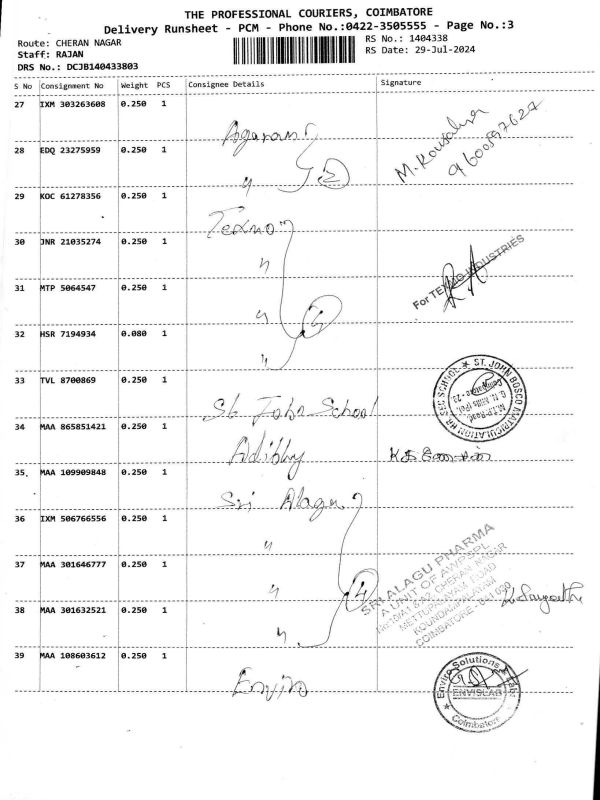 THE PROFESSIONAL COURIERS, COIMBATORE
Delivery Runsheet - PCM - Phone No.:0422-3505555 - Page No.:3
Route: CHERAN NAGAR
RS No.: 1404338
Staff: RAJAN
RS Date: 29-Jul-2024
DRS No.: DCJB140433803
S No Consignment No Weight PCS Consignee Details Signature
27 IXM 303263608 0.250 1
Agaram
M. Kousalya
9600597627
28 EDQ 23275959 0.250 1
" 2
29 KOC 61278356 0.250 1
Texmo
30 JNR 21035274 0.250 1
"
For TEXMO INDUSTRIES
31 MTP 5064547 0.250 1
" 4
32 HSR 7194934 0.080 1
"
33 TVL 8700869 0.250 1
St John School
ST. JOHN BOSCO MATRICULATION HR SEC SCHOOL
M.T.P Road,
G. N. Mills (Po),
Coimbatore - 29
34 MAA 865851421 0.250 1
35 MAA 109909848 0.250 1
Sri Alagu
36 IXM 506766556 0.250 1
"
37 MAA 301646777 0.250 1
" 4
SRI ALAGU PHARMA
A UNIT OF AWPSPL
CHERAN NAGAR
METTUPALAYAM ROAD
KOUNDAMPALAYAM
COIMBATORE - 641 030
38 MAA 301632521 0.250 1
"
39 MAA 108603612 0.250 1
Enviro
Enviro Solutions & Labs
ENVISLAB
Coimbatore